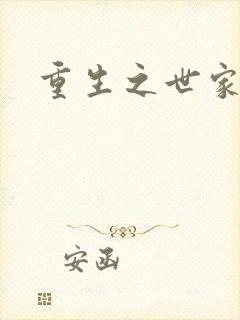 重生之世家
安函